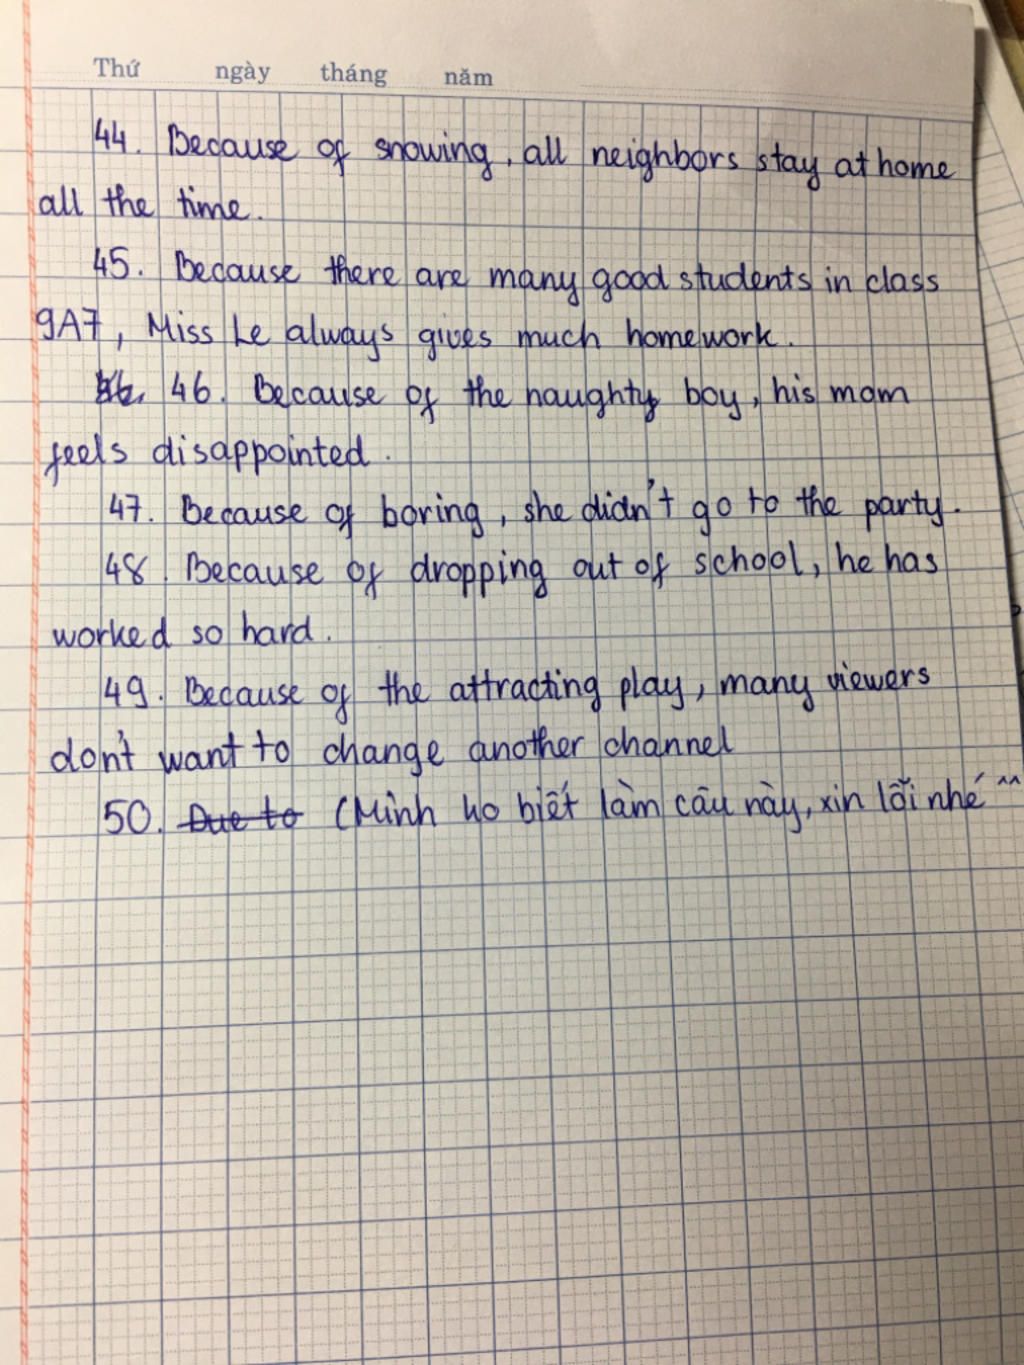 Thứ ngày tháng năm
44. Because of snowing, all neighbors stay at home
all the time.
45. Because there are many good students in class
9A7, Miss Le always gives much homework.
46. Because of the naughty boy, his mom
feels disappointed.
47. Because of boring, she didn't go to the party.
48. Because of dropping out of school, he has
worked so hard.
49. Because of the attracting play, many viewers
don't want to change another channel
50. Due to (Mình ko biết làm câu này, xin lỗi nhé ^^